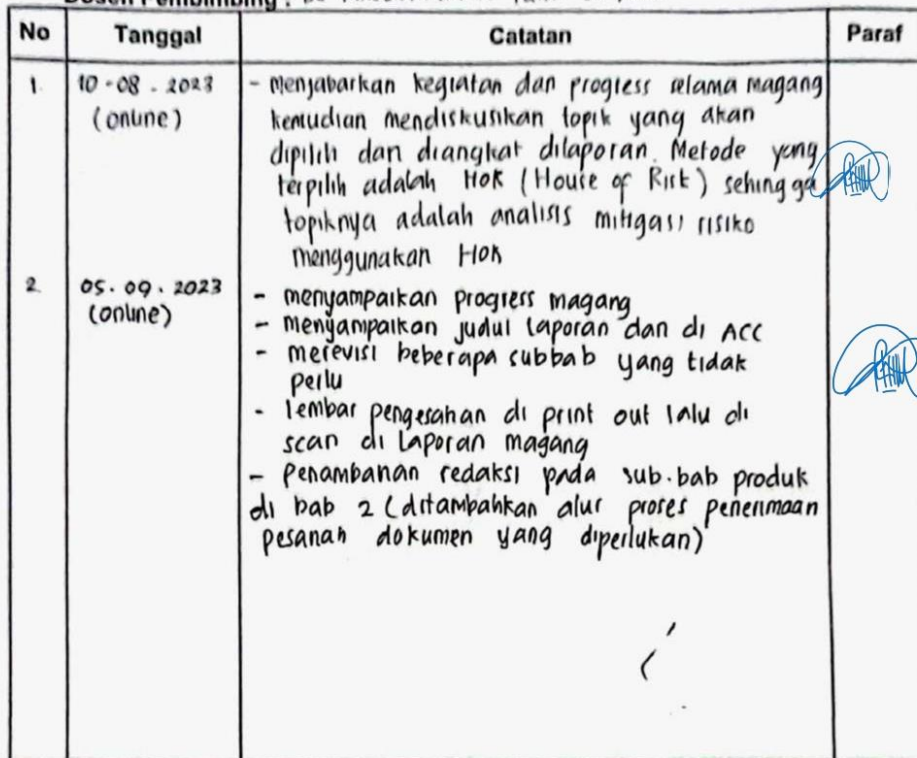 Dosen Pembimbing :
No Tanggal Catatan Paraf
1. 10-08-2023 - Menjabarkan kegiatan dan progress selama magang
(online) kemudian mendiskusikan topik yang akan
dipilih dan diangkat dilaporan. Metode yang
terpilih adalah HOR (House of Risk) sehingga
topiknya adalah analisis mitigasi risiko
menggunakan HOR
2. 05.09.2023 - menyampaikan progress magang
(online) - Menyampaikan judul laporan dan di ACC
- merevisi beberapa subbab yang tidak
perlu
- lembar pengesahan di print out lalu di
scan di laporan magang
- Penambahan redaksi pada sub.bab produk
di bab 2 (ditambahkan alur proses penerimaan
pesanan dokumen yang diperlukan)